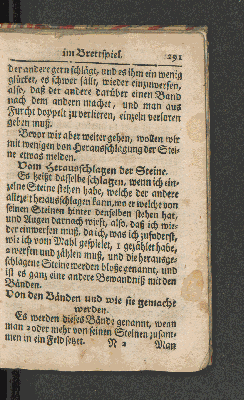 im Brettspiel. 291
der andere gern schlägt, und es ihm ein wenig
glücket, es schwer fällt, wieder einzuwerfen,
also, daß der andere darüber einen Band
nach dem andern machet, und man aus
Furcht doppelt zu verlieren, einzeln verloren
geben muß.
Bevor wir aber weiter gehen, wollen wir
mit wenigen von Herausschlagung der Stei-
ne etwas melden.
Vom Herausschlagen der Steine.
Es heißt dasselbe schlagen, wenn ich ein-
zelne Steine stehen habe, welche der andere
alle heraus schlagen kann, wo er welche von
seinen Steinen hinter denselben stehen hat,
und Augen darnach wirft, also, daß ich wie-
der einwerfen muß, da ich, was ich zuförderst,
wie ich vom Mahl gespielet, 1 gezählet habe,
werfen und zählen muß, und die herausge-
schlagene Steine werden bloße genannt, und
ist es ganz eine andere Bewandniß mit den
Bänden.
Von den Bänden und wie sie gemacht
werden.
Es werden dieses Bände genannt, wenn
man 2 oder mehr von seinen Steinen zusam-
men in ein Feld setzet. N 2 Man